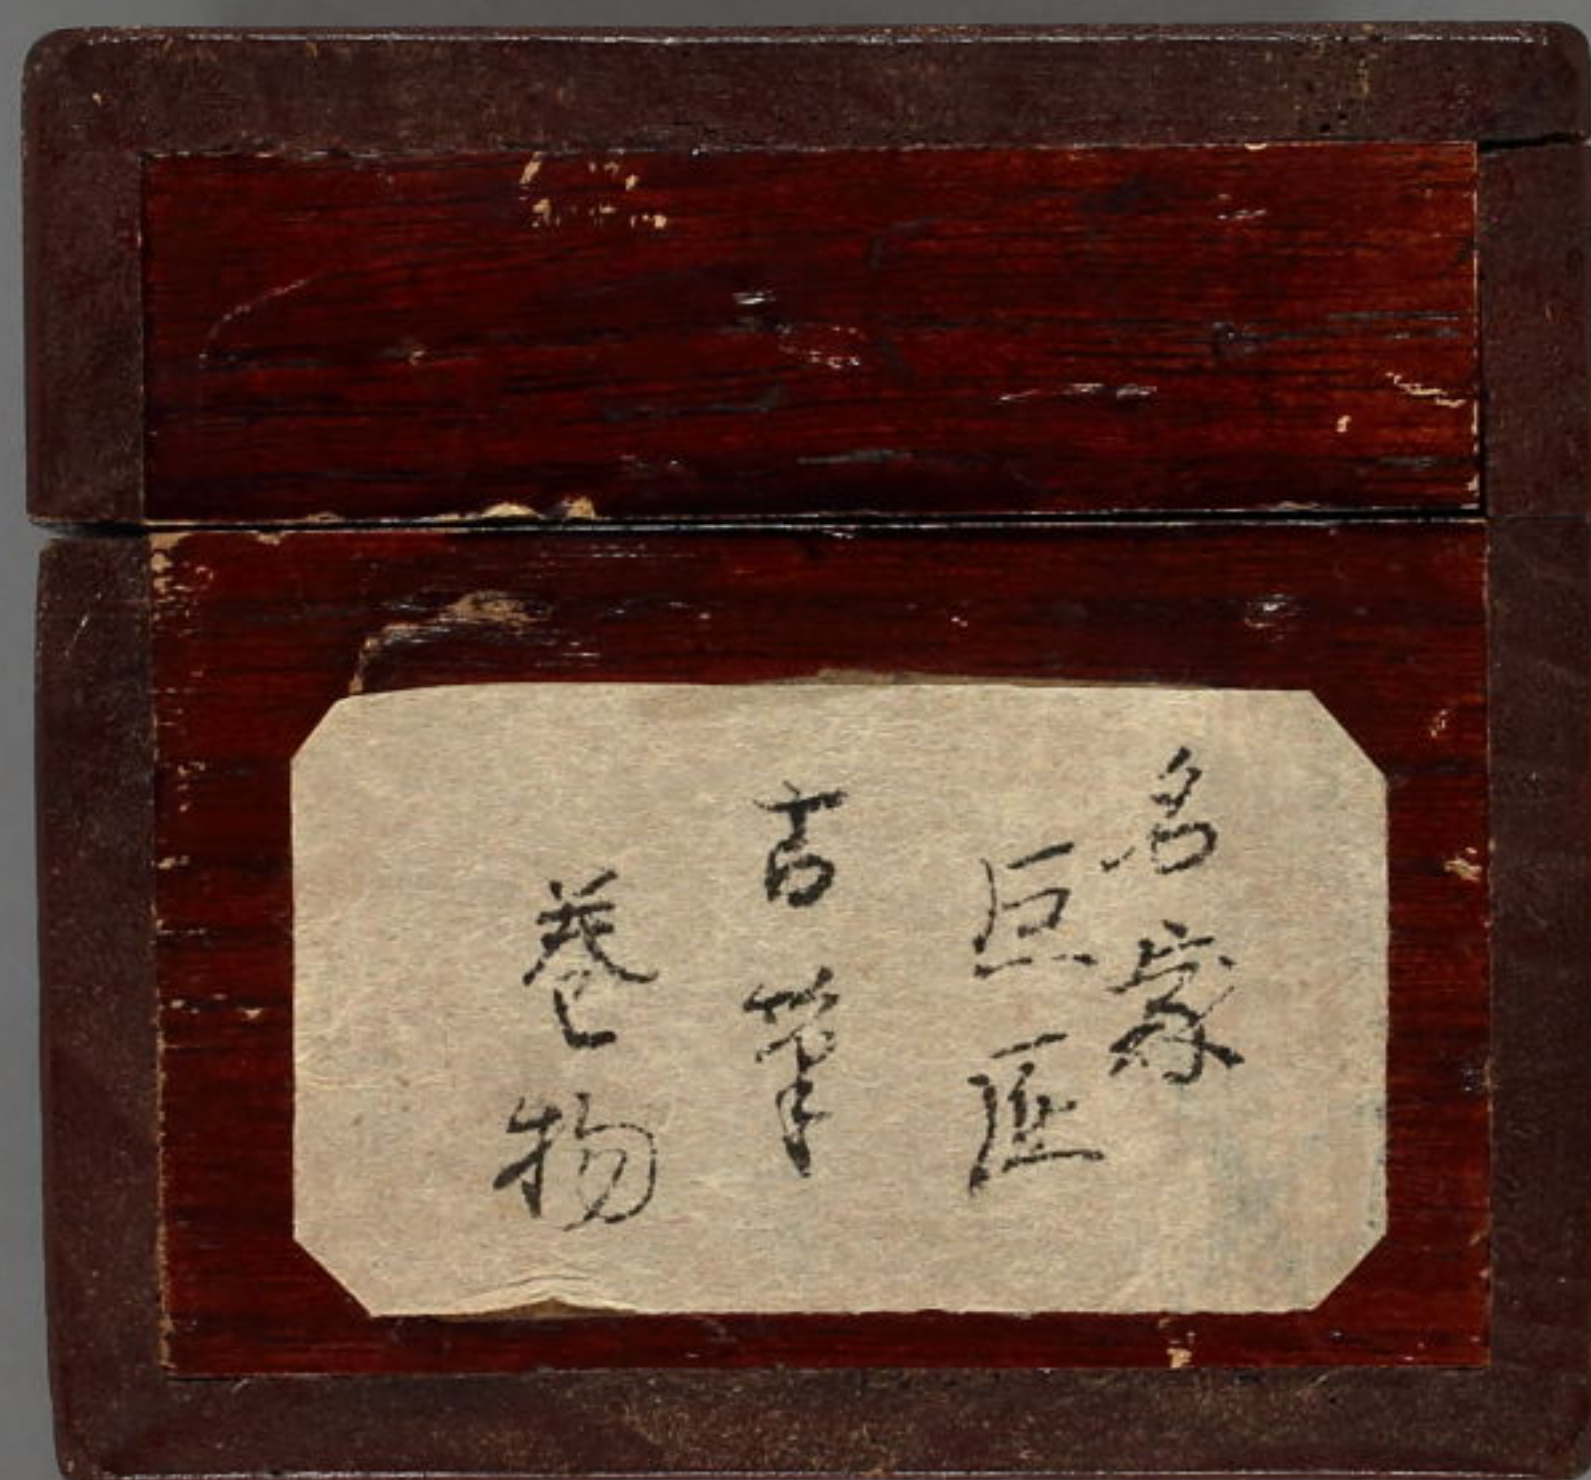 名家
巨匠
古筆
巻物